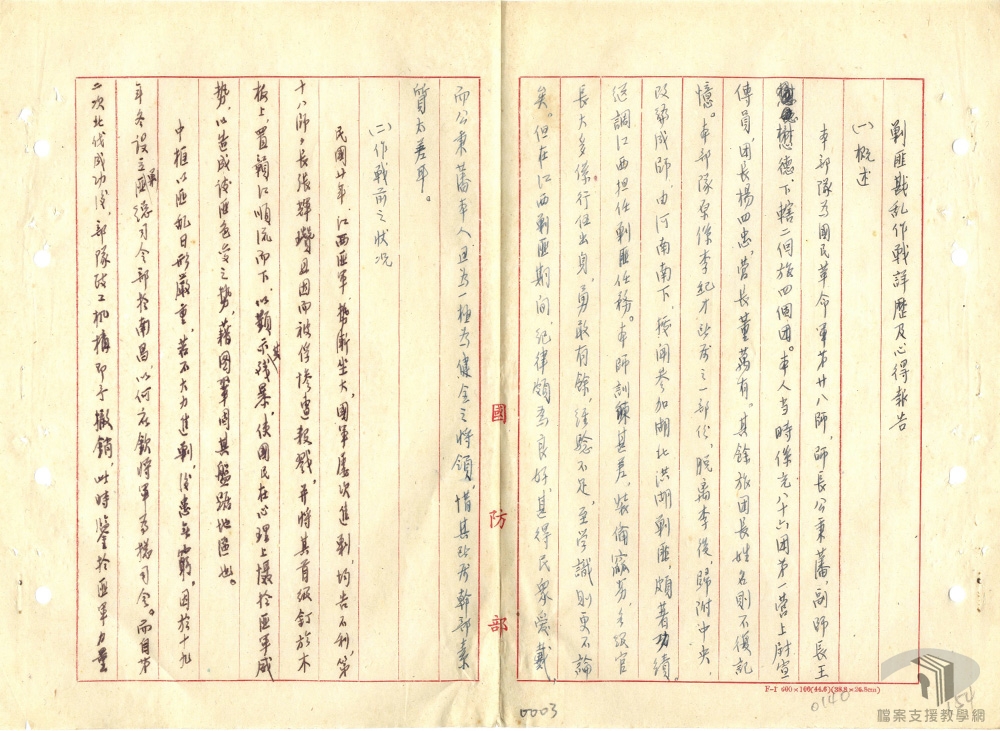 剿匪戡乱作戰詳歷及心得報告
(一)概述
本部隊為國民革命軍第廿八師,師長公秉藩,副師長王
懋德,下轄二個旅四個團。本人当時係充八十六團第一營上尉宣
傳員,团長楊四忠,營長董萬有。其餘旅团長姓名則不復記
憶。本部隊原係李紀才所属之一部份,脫离李後,歸附中央,
改編成師,由河南南下,接開参加湖北洪湖剿匪,頗著功績。
継調江西担任剿匪任務。本師訓練甚差,裝備窳劣,各級官
長大多係行伍出身,勇敢有餘,経驗不足,至学識則更不論
矣。但在江西剿匪期间,紀律頗為良好,甚得民眾愛戴,
而公秉藩本人亦為一極為健全之將領,惜其所属幹部素
質太差耳。
(二)作戰前之狀况
民國廿年,江西匪軍勢漸坐大,國軍屢次進剿,均告不利,第
十八師師長張輝瓚且因而被俘慘遭殺戮。并將其首級釘於木
板上,置贛江順流而下,以顯示其残暴,使國民在心理上懾於匪軍威
勢,以造成談匪色变之勢,藉图鞏固其盤踞地區也。
中樞以匪乱日形嚴重,若不大力進剿,後患無窮。因於十九
年冬設立剿匪總司令部於南昌,以何应欽將軍為總司令。而自第
二次北伐成功後,部隊政工机構即予撤銷,此時鑒於匪軍力量
國防部
F-1 400×146(44.6)(38.8×26.8mm)
0003
0140
154
檔案支援教學網